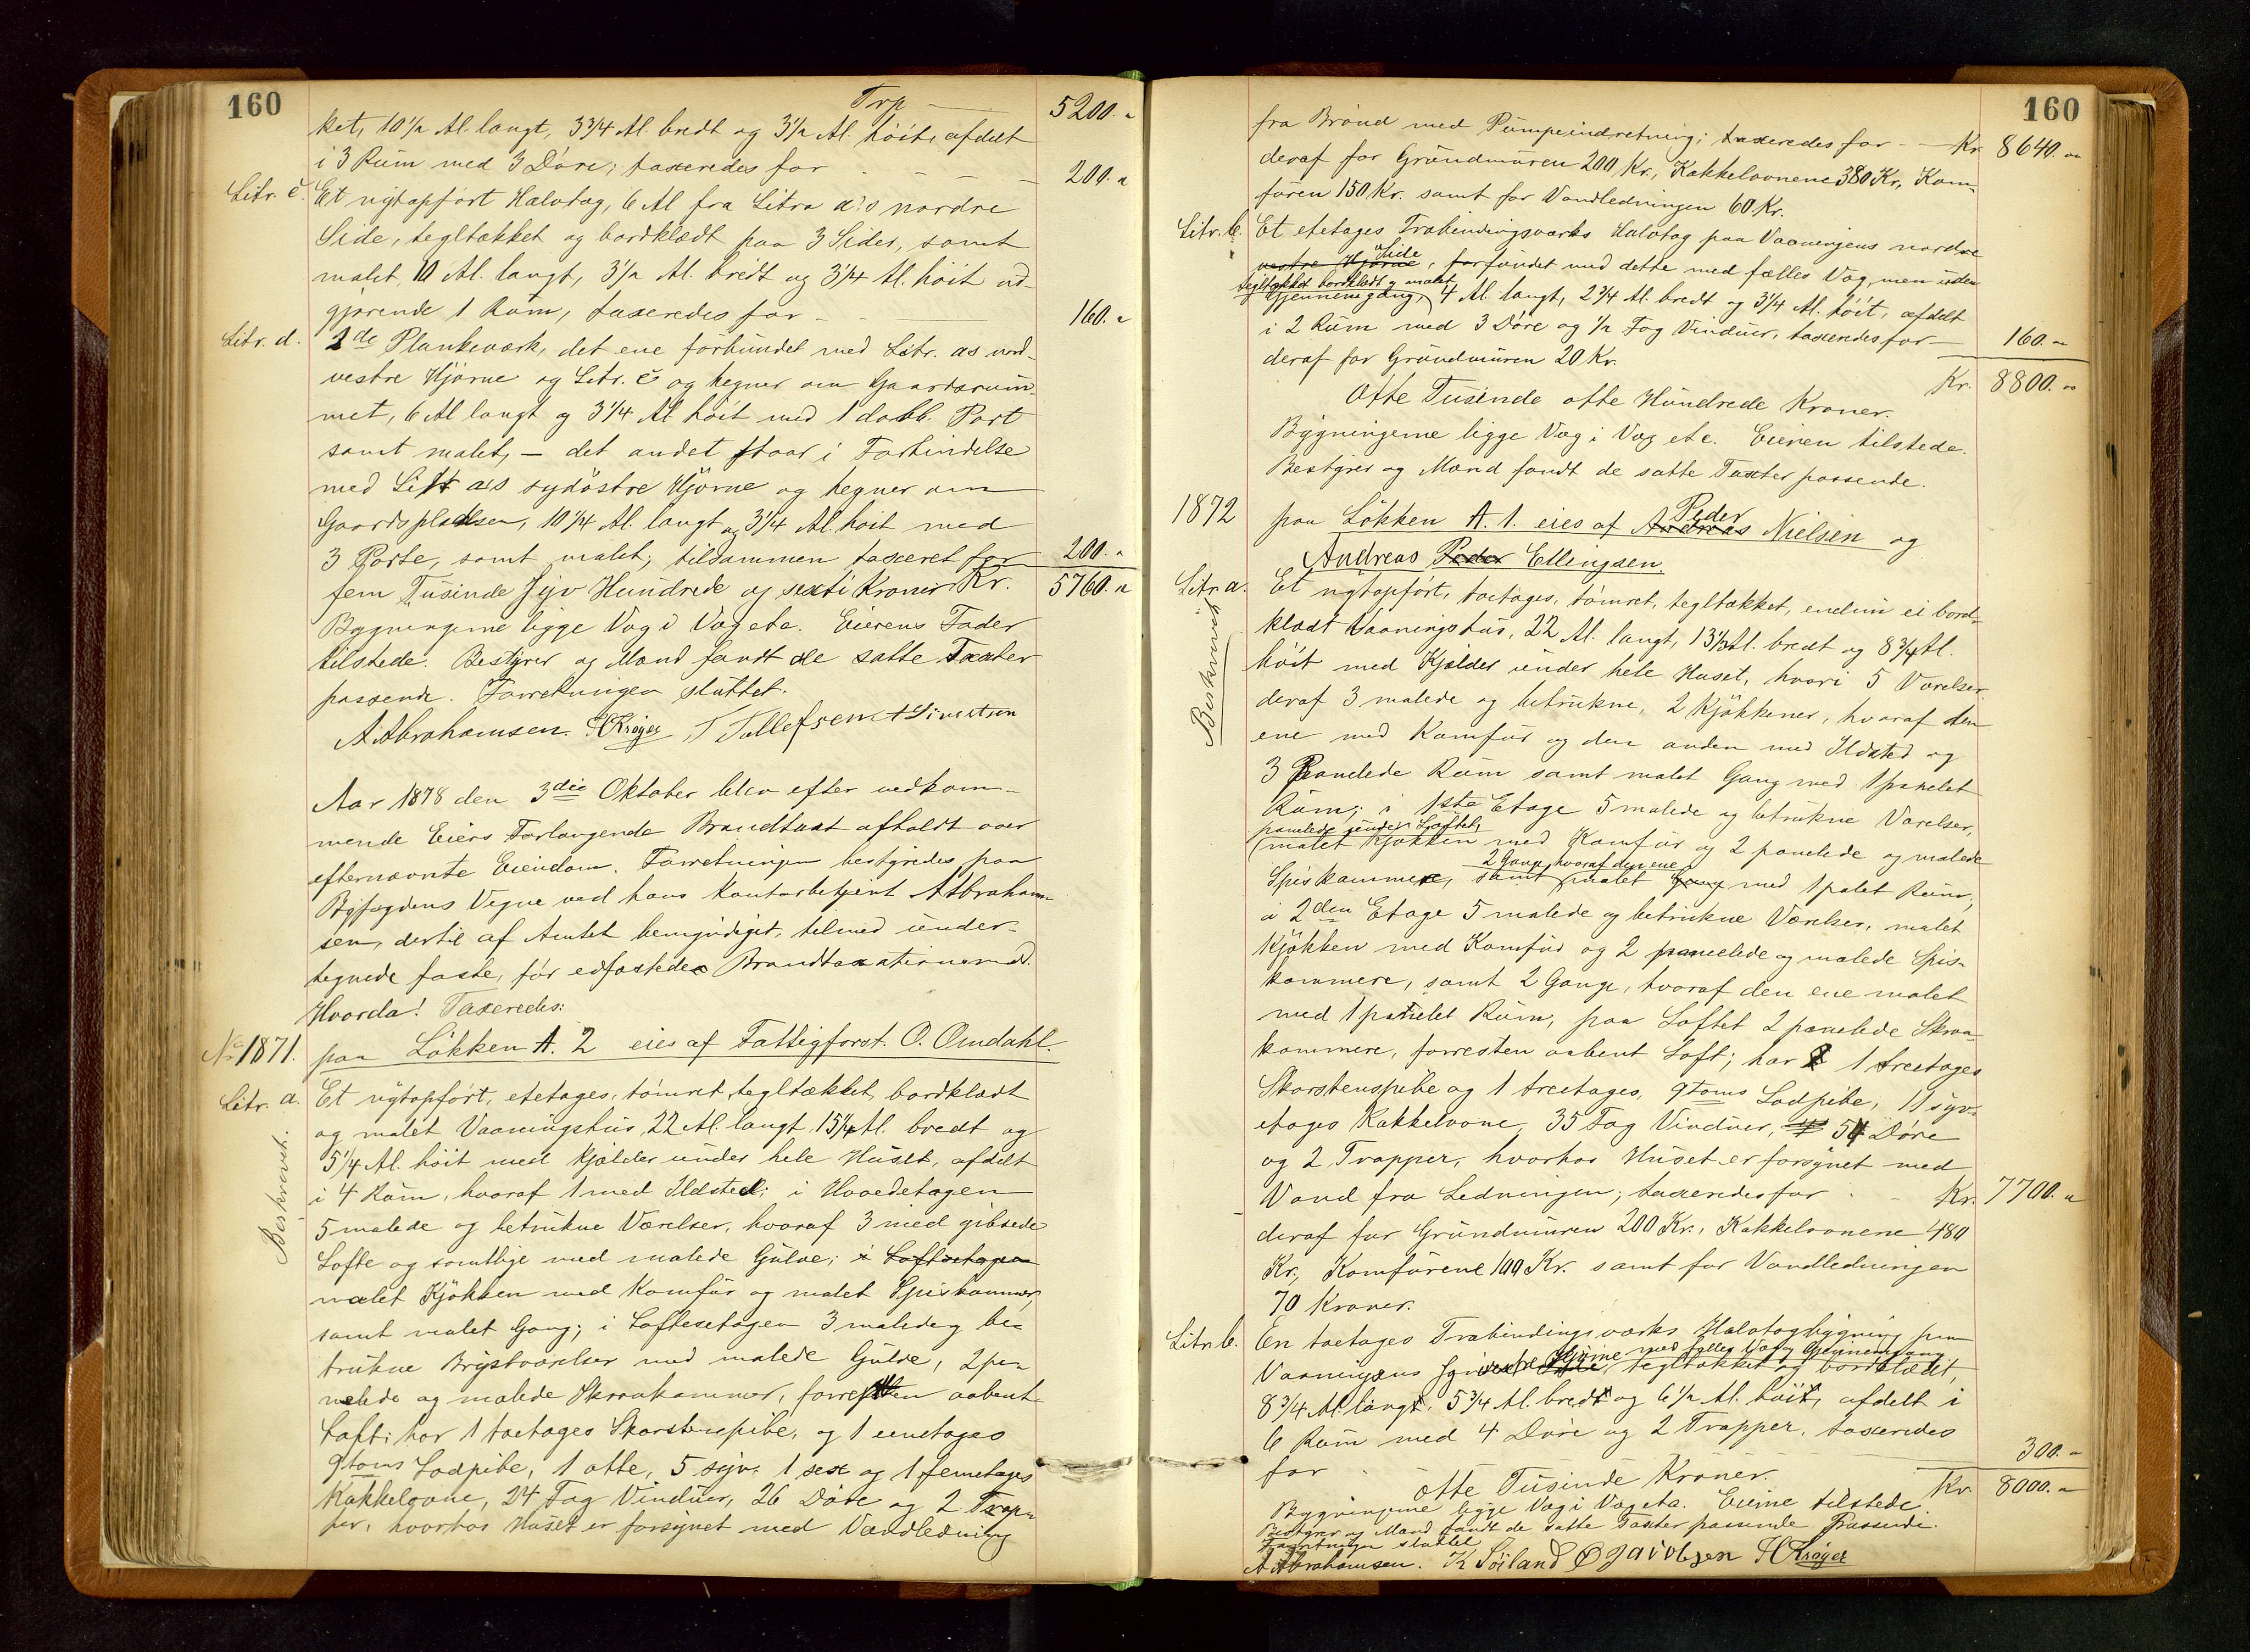 160
Trp — 5200.
ket, 10 1/2 Al. langt, 3 3/4 Al. bredt og 3 1/2 Al. höit, afdelt
i 3 Rum med 3 Döre; taxeredes for — 200.
Litr. c. Et nÿtopfört Halvtag, 6 Al fra Litra a's nordre
Side, tegltækket og bordklædt paa 3 Sider, samt
malet, 10 Al. langt, 3 1/2 Al. bredt og 3 1/4 Al. höit ud-
gjörende 1 Rum, taxeredes for — 160.
Litr. d. 2de Plankeværk, det ene forbundet med Litr. as nord-
vestre Hjörne og Litr. c og hegner om Gaardsrum-
met, 6 Al langt og 3 1/4 Al höit med 1 dobb. Port
samt malet, — det andet staar i Forbindelse
med Litr as sydöstre Hjörne og hegner om
Gaardspladsen, 10 1/4 Al. langt og 3 1/4 Al. höit med
3 Porte, samt malet; tilsammen taxeret for 200.
fem Tusinde Syv Hundrede og sexti Kroner Kr. 5760.
Bygningerne ligge Væg i Væg etc. Eierens Fader
tilstede. Bestyrer og Mænd fandt de satte Taxter
passende. Forretningen sluttet.
A Abrahamsen. H Krøger T Tollefsen A Sivertsen
Aar 1878 den 3die Oktober blev efter vedkom-
mende Eiers Forlangende Brandtaxt afholdt over
efternævnte Eiendom. Forretningen bestyredes paa
Byfogdens Vegne ved hans Kontorbetjent A Abraham-
sen, dertil af Amtet bemyndiget, tilmed under-
tegnede faste, för edfæstede Brandtaxationsmænd.
Hvorda! Taxeredes:
No 1871. paa Lökken A. 2 eies af Fattigforst. O. Omdahl.
Litr. a. Et nÿtopfört, etetages, tömret, tegltækket, bordklædt
Beskrevet.
og malet Vaaningshus, 22 Al. langt 15 1/4 Al. bredt og
5 1/4 Al. höit med Kjælder under hele Huset, afdelt
i 4 Rum, hvoraf 1 med Ildsted; i Hovedetagen
5 malede og betrukne Værelser, hvoraf 3 med gibsede
Lofte og samtlige med malede Gulve; i Loftsetagen
malet Kjökken med Komfur og malet Spiskammer,
samt malet Gang; i Loftsetagen 3 malede og be-
trukne Brystværelser med malede Gulve, 2 pa-
nelede og malede Skraakammer, forresten aabent
Loft; har 1 toetages Skorstenspibe, og 1 eenetages
9toms Lodpibe, 1 otte, 5 syv, 1 sex og 1 femetages
Kakkelovne, 24 Fag Vinduer, 26 Döre og 2 Trap-
per, hvorhos Huset er forsynet med Vandledning
160
fra Brönd med Pumpeindretning; taxeredes for — Kr. 8640.
deraf for Grundmuren 200 Kr., Kakkelovnene 380 Kr., Kom-
furen 150 Kr. samt for Vandledningen 60 Kr.
Litr. b. Et etetages Træbindingsværks Halvtag paa Vaaningens nordre
Side
vestre Hjörne, forfundet med dette med fælles Væg, men uden
tegltækket bordklædt og malet
Gjennemgang, 4 Al. langt, 2 3/4 Al. bredt og 3 1/4 Al. höit, afdelt
i 2 Rum med 3 Döre og 1/2 Fag Vinduer, taxeredes for — 160.
deraf for Grundmuren 20 Kr.
Kr. 8800.
Otte Tusinde otte Hundrede Kroner.
Bygningerne ligge Væg i Væg etc. Eieren tilstede.
Bestyrer og Mænd fandt de satte Taxter passende.
1872 paa Lökken A. 1. eies af Andreas Peder Nielsen og
Andreas Peder Ellingsen.
Litr a. Et nÿtopfört, toetages, tömret, tegltækket, endnu ei bord-
Beskrevet
klædt Vaaningshus, 22 Al. langt, 13 1/2 Al. bredt og 8 3/4 Al.
höit med Kjælder under hele Huset, hvori 5 Værelser,
deraf 3 malede og betrukne, 2 Kjökkener, hvoraf den
ene med Komfur og den anden med Ildsted og
3 Panelede Rum samt malet Gang med 1 panelet
Rum; i 1ste Etage 5 malede og betrukne Værelser,
panelede under Loftet,
malet Kjökken med Komfur og 2 panelede og malede
2 Gange, hvoraf den ene
Spiskammere, samt malet Gang med 1 palet Rum,
i 2den Etage 5 malede og betrukne Værelser, malet
Kjökken med Komfur og 2 panelede og malede Spis-
kammere, samt 2 Gange, hvoraf den ene malet
med 1 panelet Rum, paa Loftet 2 panelede Skraa-
kammere, forresten aabent Loft; har 1 treetages
Skorstenspibe og 1 treetages, 9toms Lodpibe, 11 syv-
etages Kakkelovne, 35 Fag Vinduer, 54 Döre
og 2 Trapper, hvorhos Huset er forsynet med
Vand fra Ledningen; taxeredes for — Kr. 7700.
deraf for Grundmuren 200 Kr., Kakkelovnene 480
Kr., Komfurene 100 Kr. samt for Vandledningen
70 Kroner.
Litr. b. En toetages Træbindingsværks Halvtagbygning paa
med fælles Væg og Gjennemgang
Vaaningens vestre Hjörne, tegltækket og bordklædt,
8 3/4 Al. langt, 5 3/4 Al. bredt og 6 1/2 Al. höit, afdelt i
6 Rum med 4 Döre og 2 Trapper, taxeredes
for — 300.
Otte Tusinde Kroner. Kr. 8000.
Bygningerne ligge Væg i Væg etc. Eierne tilstede.
Bestyrer og Mænd fandt de satte Taxter passende Passende.
Forretningen sluttet
A Abrahamsen. K Söiland O Jacobsen H Krøger